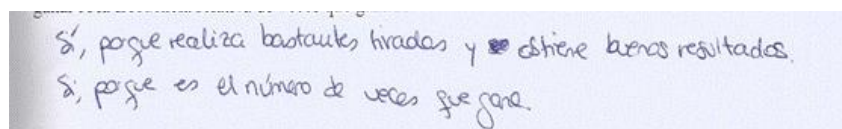 Sí, porque realiza bastantes tiradas y obtiene buenos resultados.
Sí, porque es el número de veces que gana.